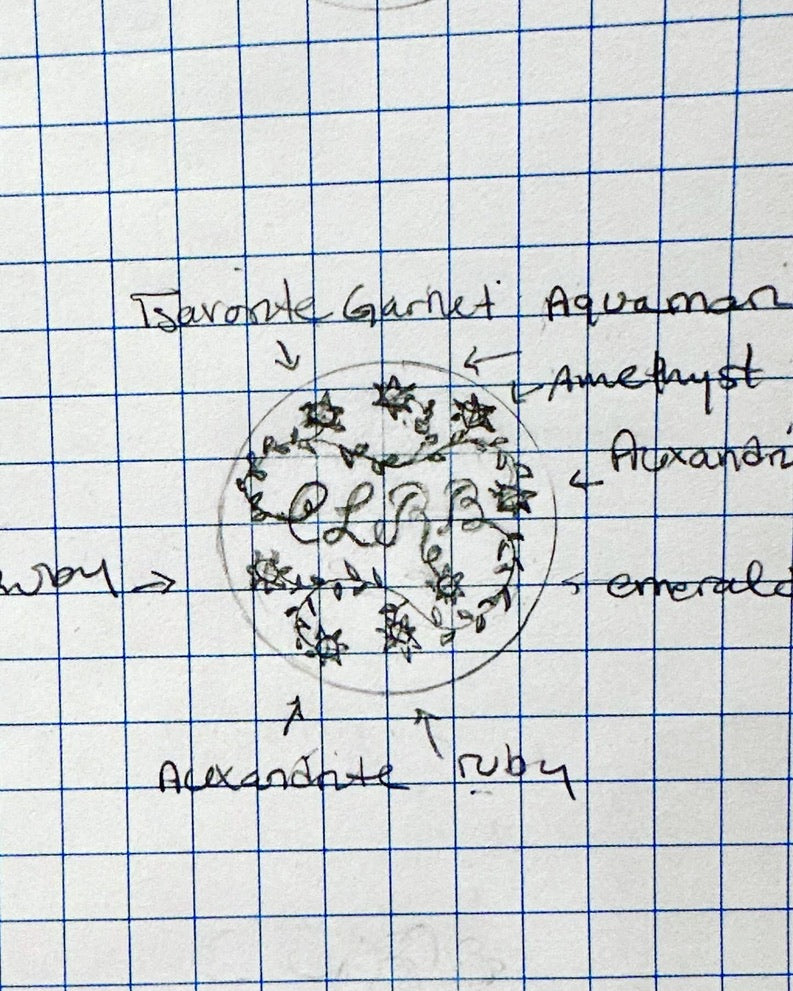 Tsavorite Garnet Aquamari
Amethyst
Alexandri
CLRB
ruby
emerald
Alexandrite ruby